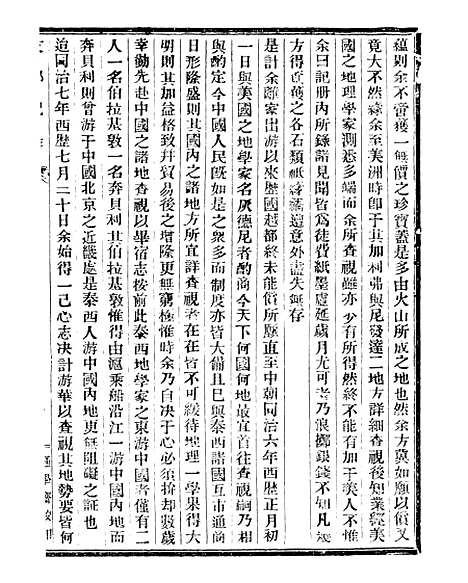 蘊則余不啻獲一無價之珍寶蓋是多由火山所成之地也然余方冀如願以償又
竟大不然緣余至美洲時即于其加利弗與尼發達二地方詳細查視後知業經美
國之地理學家測悉多端而余所查視雖亦少有所得然終不能有加于美人不
余曰記册內所錄諸見聞皆爲徒費紙墨虛延歲月尤可考乃浪擲銀錢不知凡幾
方得萬獲之各石類紙緣意外盡失無存
是計余離家出游以來歷國越都終未能償所願直至中朝同治六年西歷正月初
一日與美國之地學家名厥德尼者酌商今天下何國何地最宜首往查視嗣乃相
與酌定今中國人民既如是之衆多而制度亦皆大備且已與泰西諸國互市通商
日形隆盛則其國內之諸地方所宜詳查視者在在皆不可緩待地理一學果得大
明則其加益格致幷貿易後之增隆更無窮極惟時余乃自決于心必須拚却數歲
幸勤先赴中國之諸地查視以畢宿志按前此泰西地學家之東游中國者僅有二
人一名伯拉基敦一名奔貝利其伯拉基敦惟得由滬乘船沿江一游中國內地而
奔貝利則曾游于中國北京之近畿處是泰西人游中國內地更無阻礙之証也
迨同治七年西歷七月二十日余始得一己心志決計游華以查視其地勢要皆何